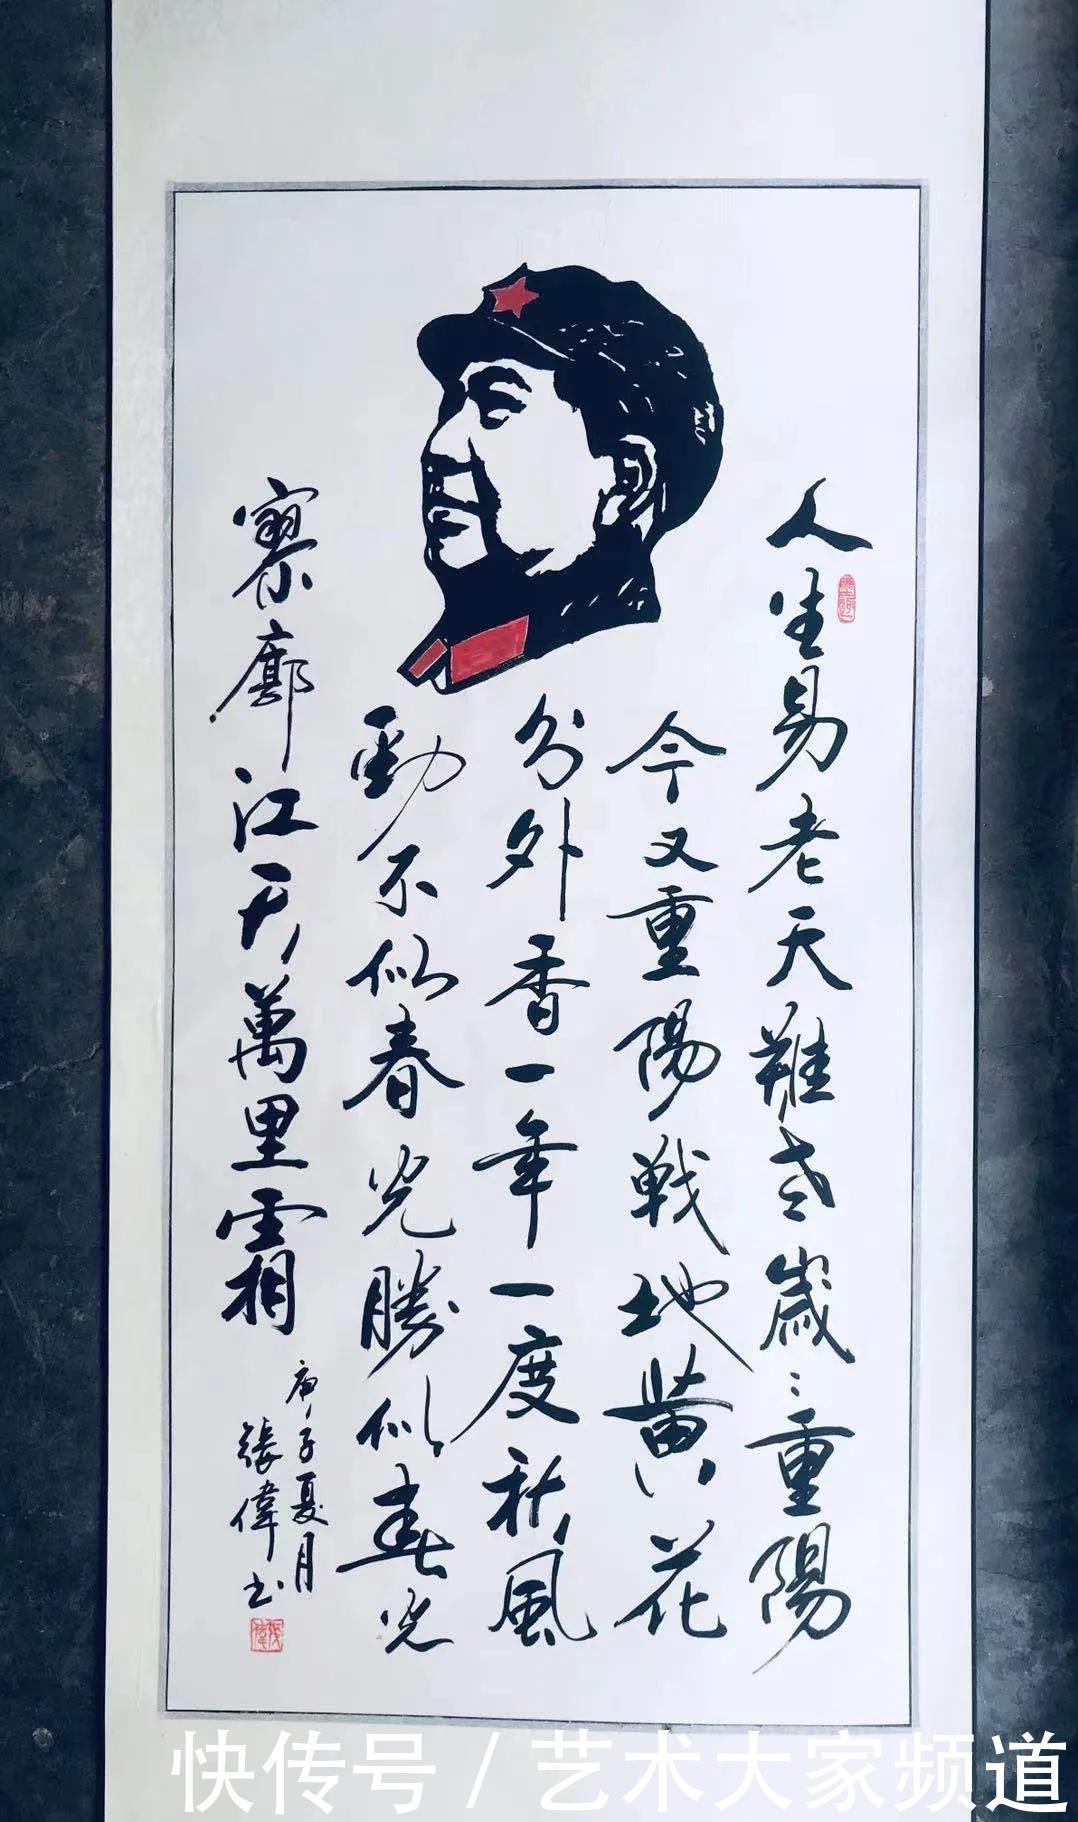 人生易老天難老歲〻重陽
今又重陽戰地黄花
分外香一年一度秋風
勁不似春光勝似春光
寥廓江天萬里霜
庚子夏月
張偉书
快传号 / 艺术大家频道